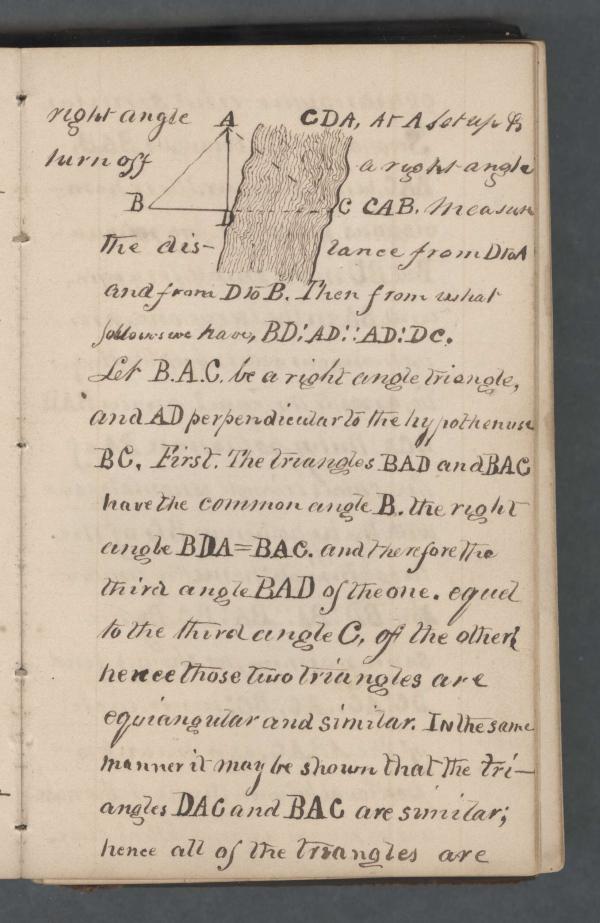 right angle A CDA, At A set up &
turn off a right angle
B D C CAB. Measure
the dis- tance from D to A
and from D to B. Then from what
follows we have, BD:AD::AD:DC.
Let B.A.C. be a right angle triangle,
and AD perpendicular to the hypothenuse
BC, First. The triangles BAD and BAC
have the common angle B. the right
angle BDA=BAC. and therefore the
third angle BAD of the one. equel
to the third angle C, of the other;
hence those two triangles are
equiangular and similar. In the same
manner it may be shown that the tri-
angles DAC and BAC are similar;
hence all of the triangles are